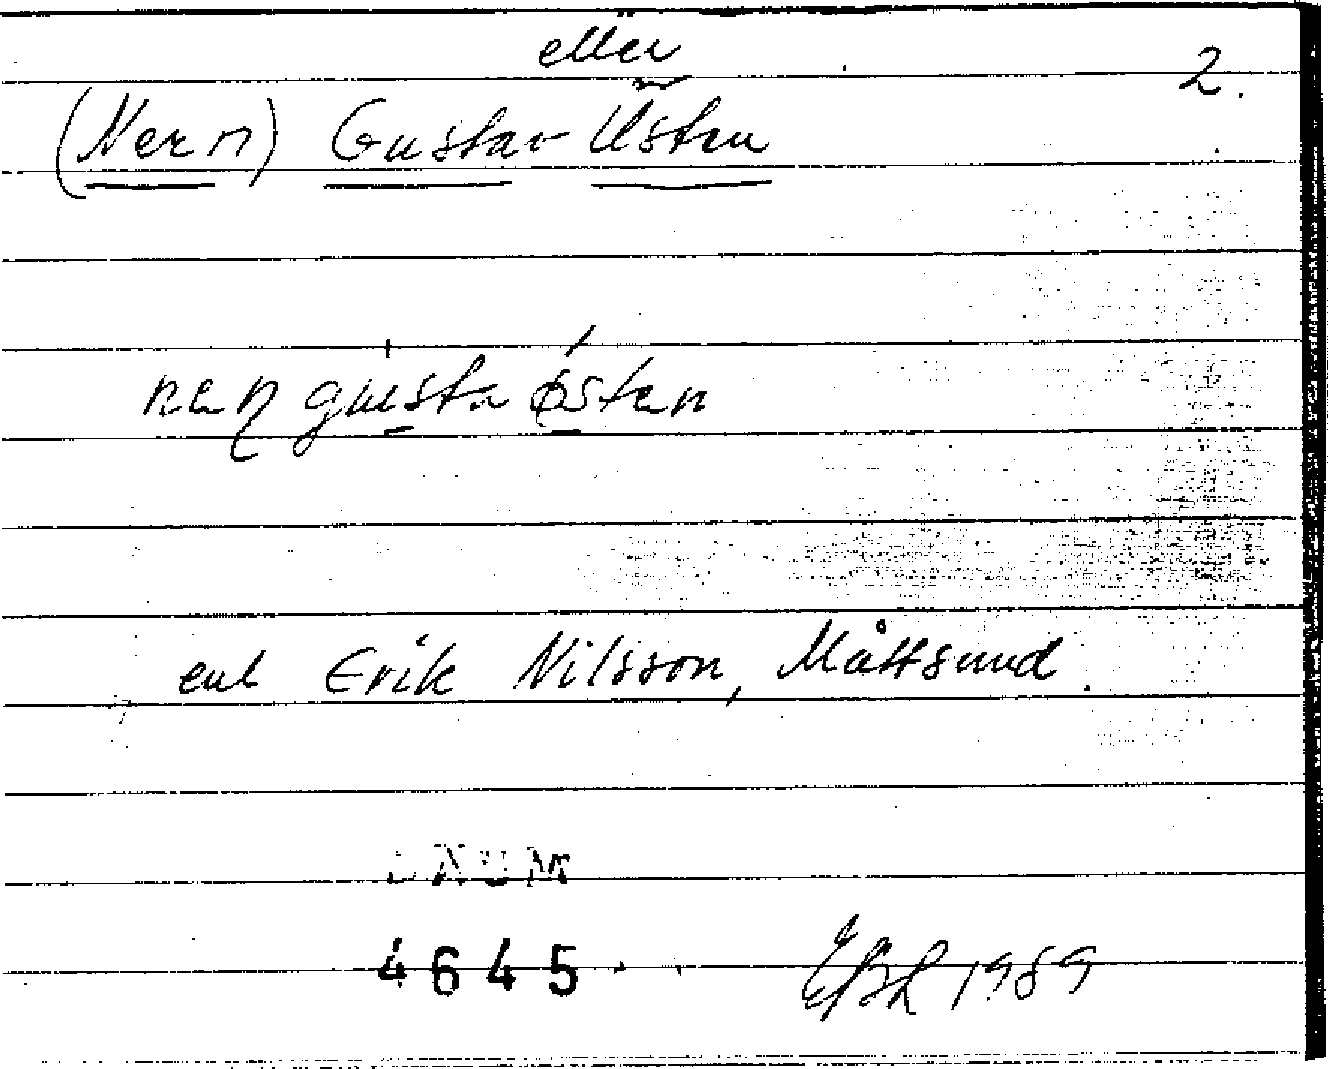 eller
2.
(Nern) Gustav Östen
nen gusta östen
enl Erik Nilsson, Måttsund.
DAUM
4645
EBL 1989